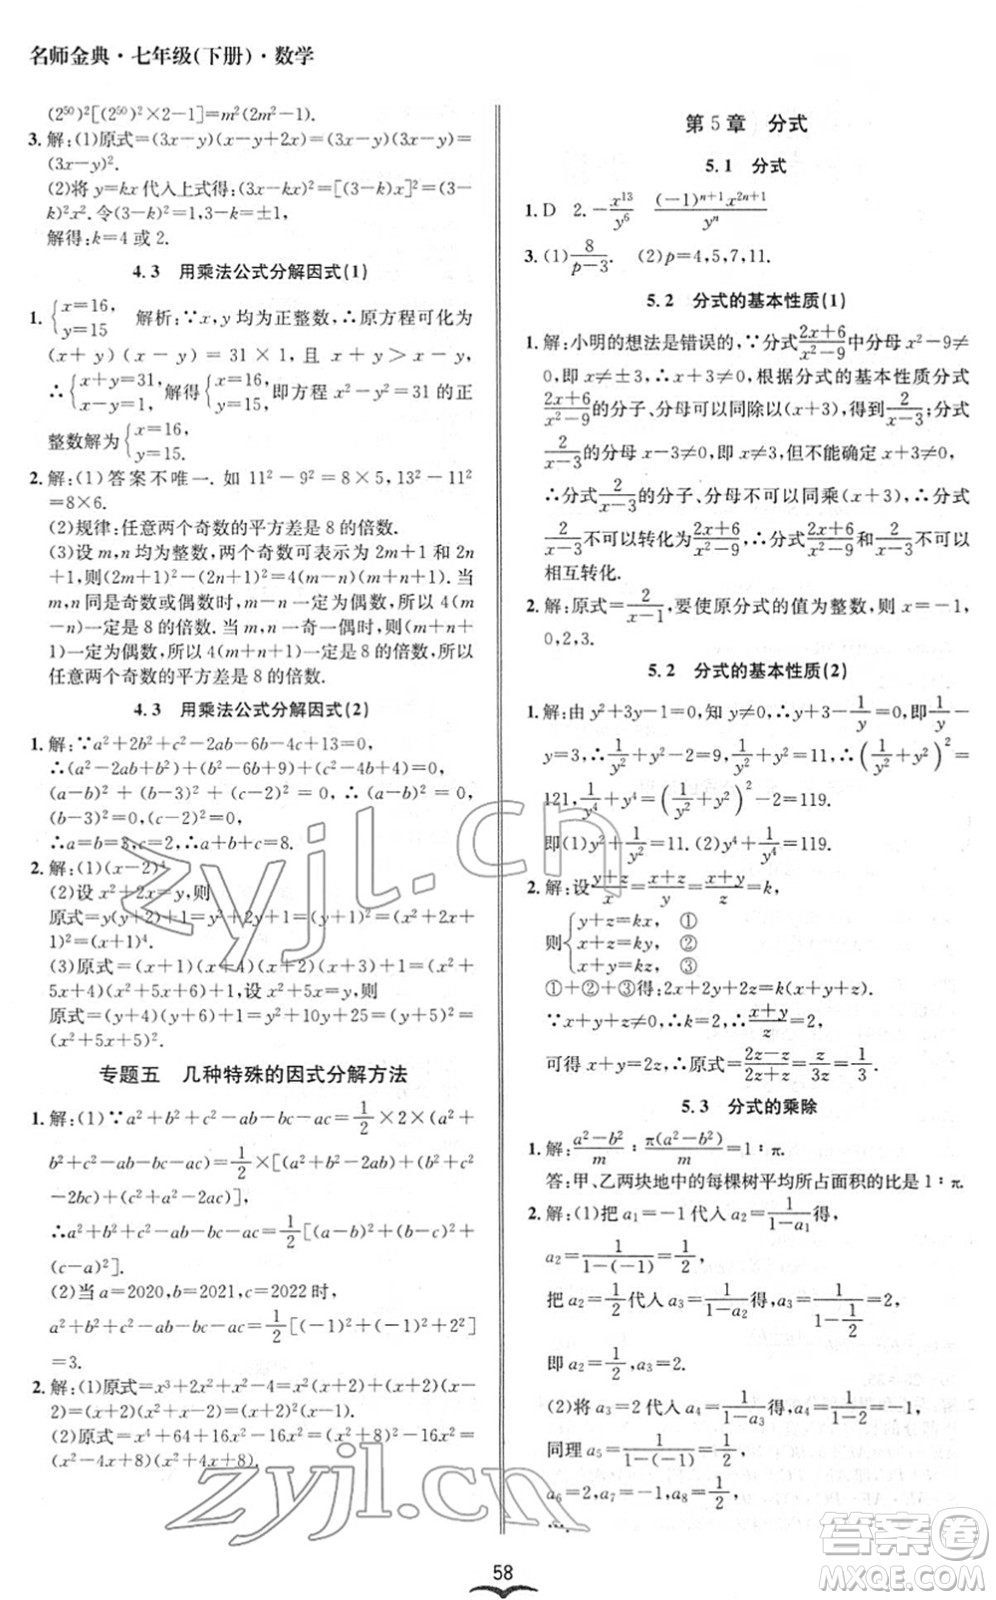 名师金典·七年级(下册)·数学
(2⁵⁰)²[(2⁵⁰)²×2-1]=m²(2m²-1).
3. 解:(1)原式=(3x-y)(x-y+2x)=(3x-y)(3x-y)=
(3x-y)².
(2)将 y=kx 代入上式得:(3x-kx)²=[(3-k)x]²=(3-
k)²x².令(3-k)²=1,3-k=±1,
解得:k=4 或 2.
4.3 用乘法公式分解因式(1)
1. {x=16, y=15 解析:∵x,y 均为正整数,∴原方程可化为
(x+y)(x-y)=31×1,且 x+y>x-y,
∴{x+y=31, x-y=1, 解得{x=16, y=15, 即方程 x²-y²=31 的正
整数解为{x=16, y=15.
2. 解:(1)答案不唯一.如 11²-9²=8×5,13²-11²
=8×6.
(2)规律:任意两个奇数的平方差是 8 的倍数.
(3)设 m,n 均为整数,两个奇数可表示为 2m+1 和 2n
+1,则(2m+1)²-(2n+1)²=4(m-n)(m+n+1).当
m,n 同是奇数或偶数时,m-n 一定为偶数,所以 4(m-
n)一定是 8 的倍数.当 m,n 一奇一偶时,则(m+n+
1)一定为偶数,所以 4(m+n+1)一定是 8 的倍数,所以
任意两个奇数的平方差是 8 的倍数.
4.3 用乘法公式分解因式(2)
1. 解:∵a²+2b²+c²-2ab-6b-4c+13=0,
∴(a²-2ab+b²)+(b²-6b+9)+(c²-4c+4)=0,
(a-b)²+(b-3)²+(c-2)²=0,∴(a-b)²=0,
(b-3)²=0,(c-2)²=0,∴a=b,b=3,c=2,
∴a=b=3,c=2,∴a+b+c=8.
2. 解:(1)(x-2)⁴
(2)设 x²+2x=y,则
原式=y(y+2)+1=y²+2y+1=(y+1)²=(x²+2x+
1)²=(x+1)⁴.
(3)原式=(x+1)(x+4)(x+2)(x+3)+1=(x²+
5x+4)(x²+5x+6)+1,设 x²+5x=y,则
原式=(y+4)(y+6)+1=y²+10y+25=(y+5)²=
(x²+5x+5)².
专题五 几种特殊的因式分解方法
1. 解:(1)∵a²+b²+c²-ab-bc-ac=1/2×2×(a²+
b²+c²-ab-bc-ac)=1/2×[(a²-2ab+b²)+(b²-
2bc+c²)+(a²+c²-2ac)],
∴a²+b²+c²-ab-bc-ac=1/2[(a-b)²+(b-c)²+
(c-a)²].
(2)当 a=2020,b=2021,c=2022 时,
a²+b²+c²-ab-bc-ac=1/2[(-1)²+(-1)²+2²]
=3.
2. 解:(1)原式=x³+x²+x²-4=x²(x+1)+(x+2)(x-
2)
(2)原式=x⁴+64+16x²-16x²=(x²+8)²-16x²=
(x²-4x+8)(x²+4x+8).
第 5 章 分式
5.1 分式
1. D 2. -x¹³/y⁶ (-1)ⁿ⁺¹x²ⁿ⁺¹/yⁿ
3. (1)8/(p-3). (2)p=4,5,7,11.
5.2 分式的基本性质(1)
1. 解:小明的想法是错误的,∵分式(2x+6)/(x²-9)中分母 x²-9≠
0,即 x≠±3,∴根据分式的基本性质分式
(2x+6)/(x²-9)的分子、分母可以同除以(x+3),得到2/(x-3);分式
2/(x-3)的分母 x-3≠0,即 x≠3,但 x+3 可以为 0,
∴分式2/(x-3)的分子、分母不可以同乘(x+3),∴分式
2/(x-3)不可以转化为分式(2x+6)/(x²-9),∴分式(2x+6)/(x²-9)与2/(x-3)不可以
相互转化.
2. 解:原式=2/(x-1),要使原分式的值为整数,则 x=-1,
0,2,3.
5.2 分式的基本性质(2)
1. 解:由 y²+3y-1=0,知 y≠0,∴y+3-1/y=0,即1/y-
y=3,∴1/y²+y²-2=9,∴1/y²+y²=11,∴(1/y²+y²)²=
121,1/y⁴+y⁴=(1/y²+y²)²-2=119.
即(1)y²+1/y²=11. (2)y⁴+1/y⁴=119.
2. 解:设(y+z)/x=(x+z)/y=(x+y)/z=k,
则{y+z=kx, ① x+z=ky, ② x+y=kz, ③
①+②+③得:2x+2y+2z=k(x+y+z).
∵x+y+z≠0,∴k=2,∴(x+y)/z=2,
可得 x+y=2z,∴原式=(2z-z)/(2z+z)=z/3z=1/3.
5.3 分式的乘除
1. 解:(a²-b²)/m:π(a²-b²)/m=1:π.
答:甲、乙两块地中的每棵树平均所占面积的比是 1:π.
2. 解:(1)把 a₁=-1 代入 a₂=1/(1-a₁)得,
a₂=1/(1-(-1))=1/2,
把 a₂=1/2代入 a₃=1/(1-a₂)得,a₃=1/(1-1/2)=2,
即 a₂=1/2,a₃=2.
(2)将 a₃=2 代入 a₄=1/(1-a₃)得,a₄=1/(1-2)=-1,
同理 a₅=1/(1-(-1))=1/2,
a₆=2,a₇=-1,a₈=1/2,
….
58
zyjl.cn
zyjl.cn
答案圈
MXQE.COM